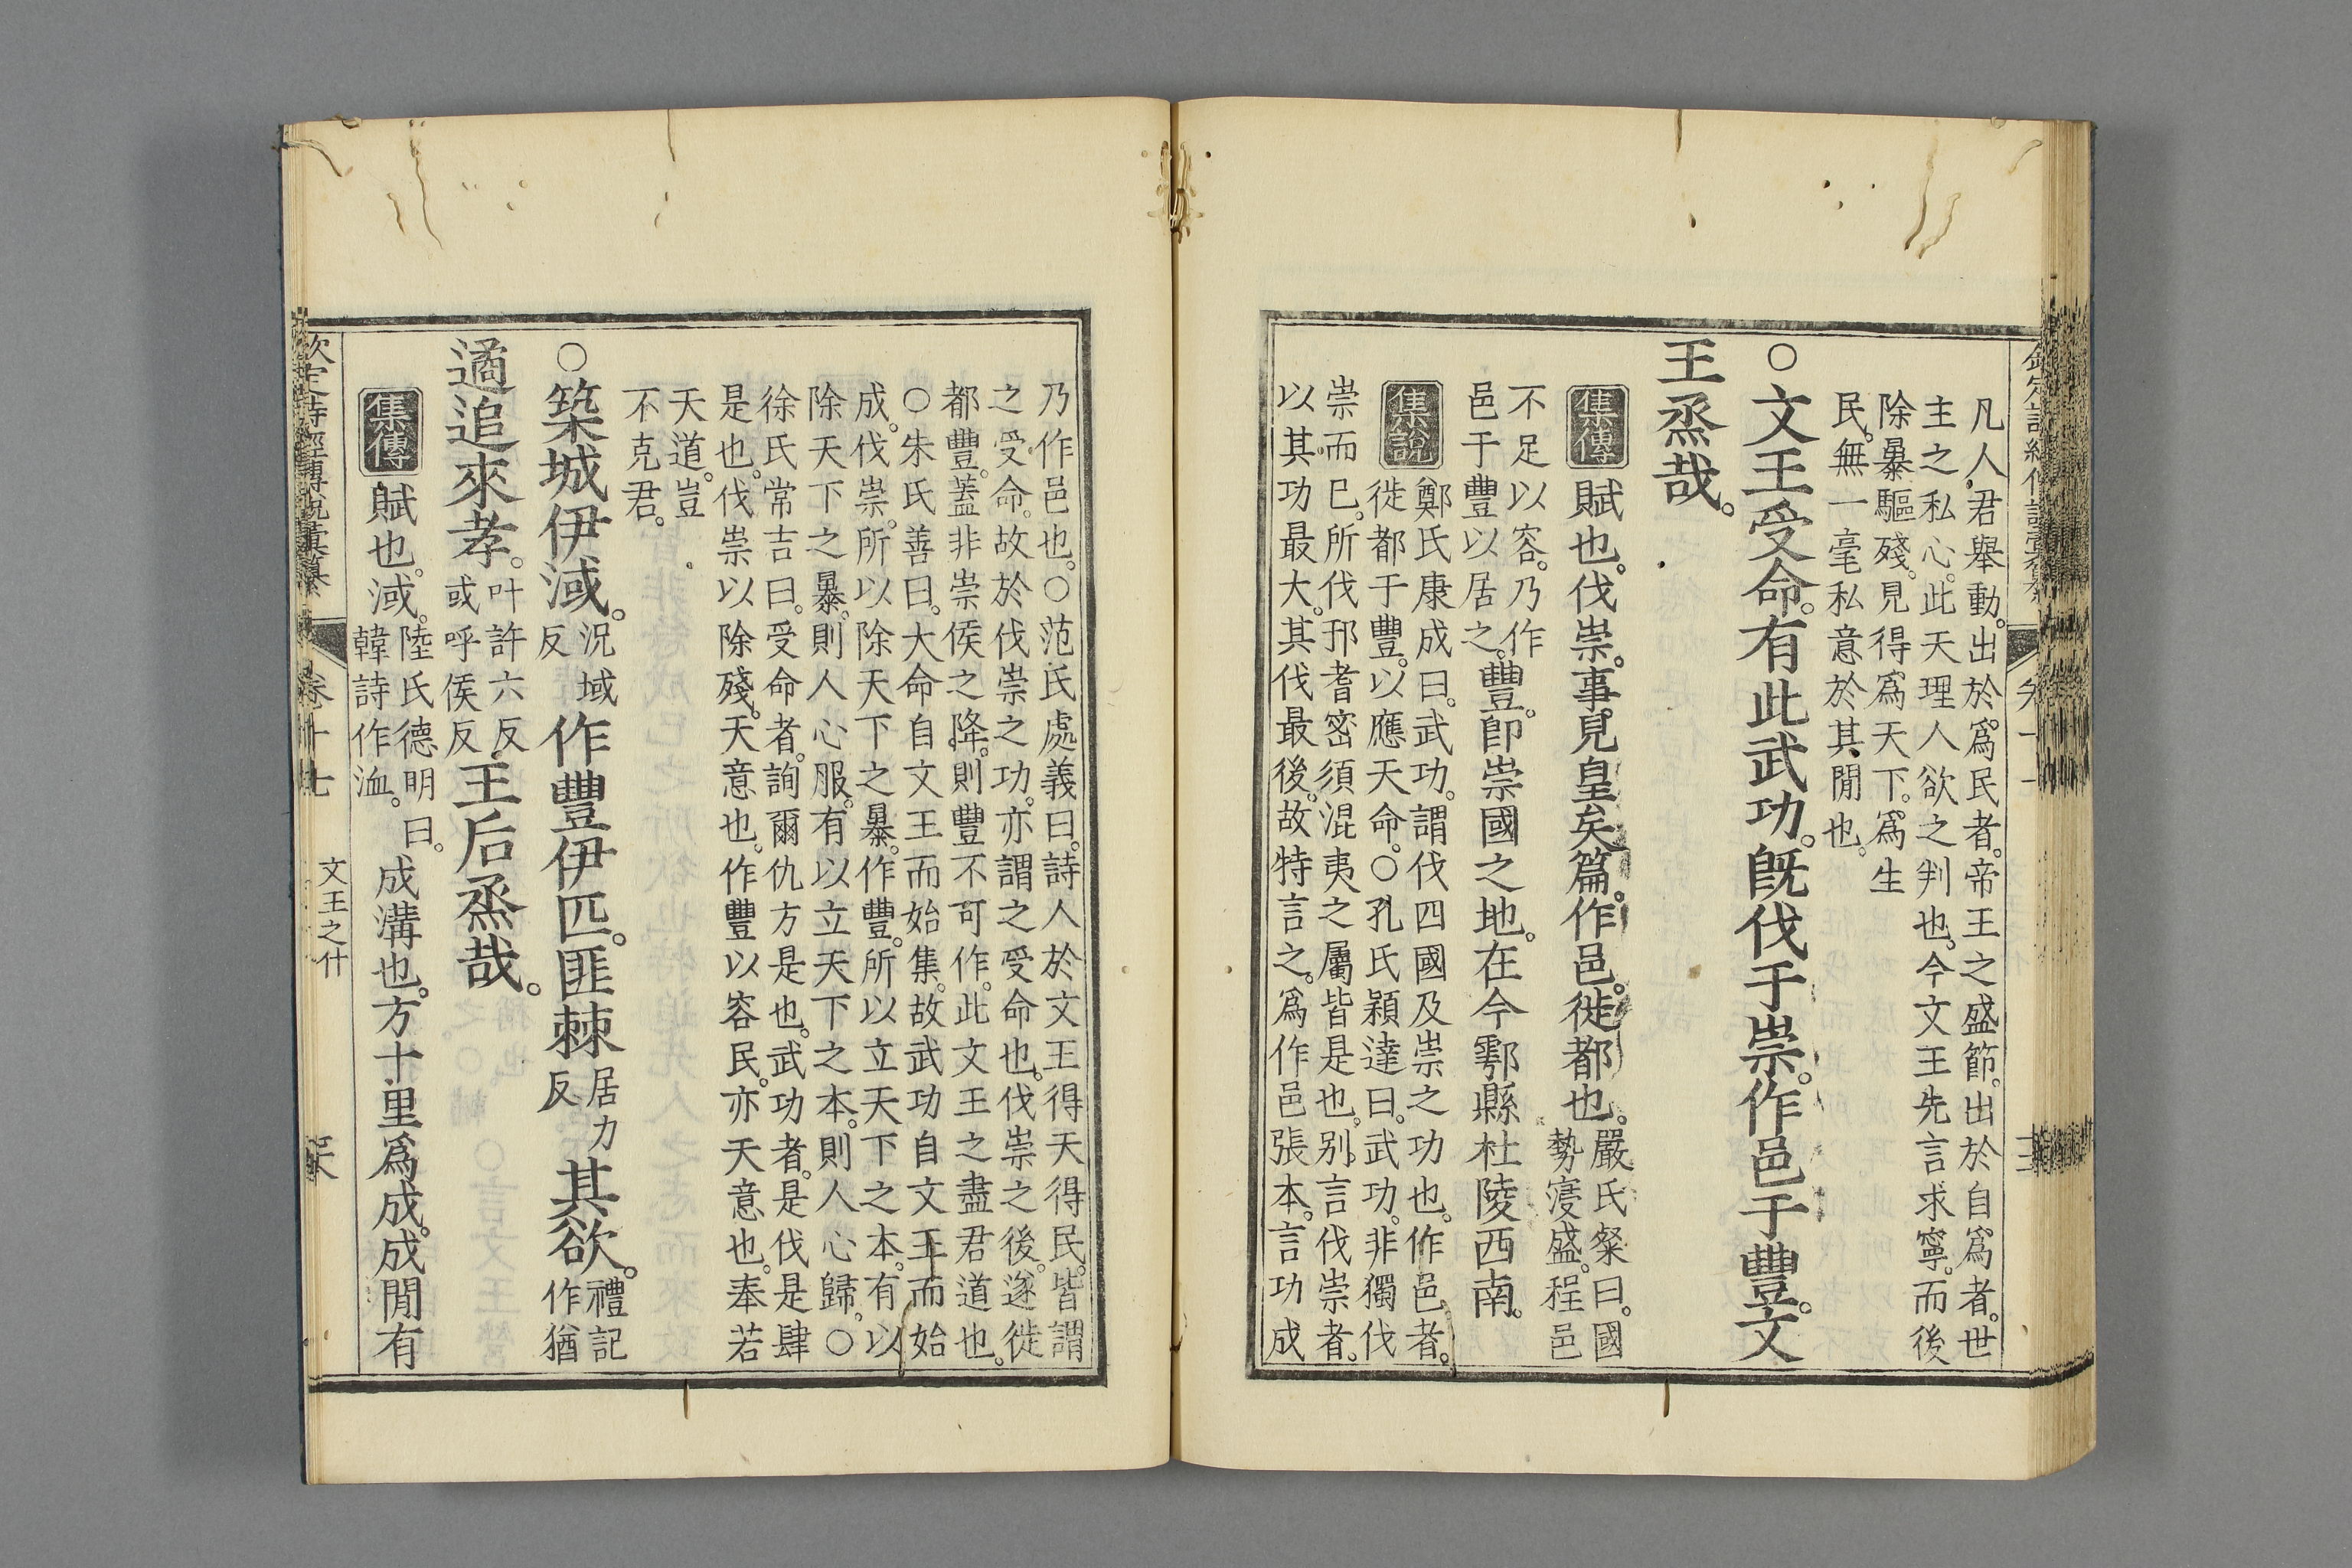 凡人君舉動。出於爲民者。帝王之盛節。出於自爲者。世
主之私心。此天理人欲之判也。今文王先言求寧。而後
除暴驅殘。見得爲天下。爲生
民。無一毫私意於其閒也。
○文王受命。有此武功。旣伐于崇。作邑于豐。文
王烝哉。
集傳
賦也。伐崇。事見皇矣篇。作邑。徙都也。
嚴氏粲曰。國
勢寖盛。程邑
不足以容。乃作
邑于豐以居之。
豐。卽崇國之地。在今鄠縣杜陵西南。
集說
鄭氏康成曰。武功。謂伐四國及崇之功也。作邑者。
徙都于豐。以應天命。○孔氏穎達曰。武功。非獨伐
崇而已。所伐邘耆密須混夷之屬皆是也。别言伐崇者。
以其功最大。其伐最後。故特言之。爲作邑張本。言功成
乃作邑也。○范氏處義曰。詩人於文王得天得民。皆謂
之受命。故於伐崇之功。亦謂之受命也。伐崇之後。遂徙
都豐。蓋非崇侯之降。則豐不可作。此文王之盡君道也。
○朱氏善曰。大命自文王而始集。故武功自文王而始
成。伐崇。所以除天下之暴。作豐。所以立天下之本。有以
除天下之暴。則人心服。有以立天下之本。則人心歸。○
徐氏常吉曰。受命者。詢爾仇方是也。武功者。是伐是肆
是也。伐崇以除殘。天意也。作豐以容民。亦天意也。奉若
天道。豈
不克君。
○築城伊淢。
況域
反
作豐伊匹。匪棘
居力
反
其欲。
禮記
作猶
遹追來孝。
叶許六反
或呼侯反
王后烝哉。
集傳
賦也。淢。
陸氏德明曰。
韓詩作洫。
成溝也。方十里爲成。成閒有
欽定詩經傳說彙纂
卷十七
文王之什